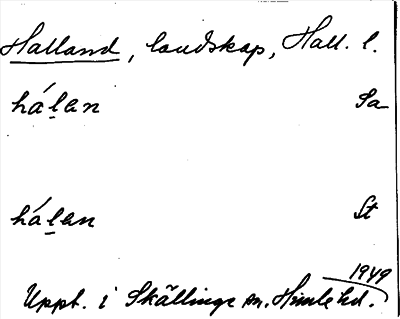 Halland, landskap, Hall. l.
háḻan Sa
háḻan St
1949
Uppt. i Skällinge sn. Himle hd.